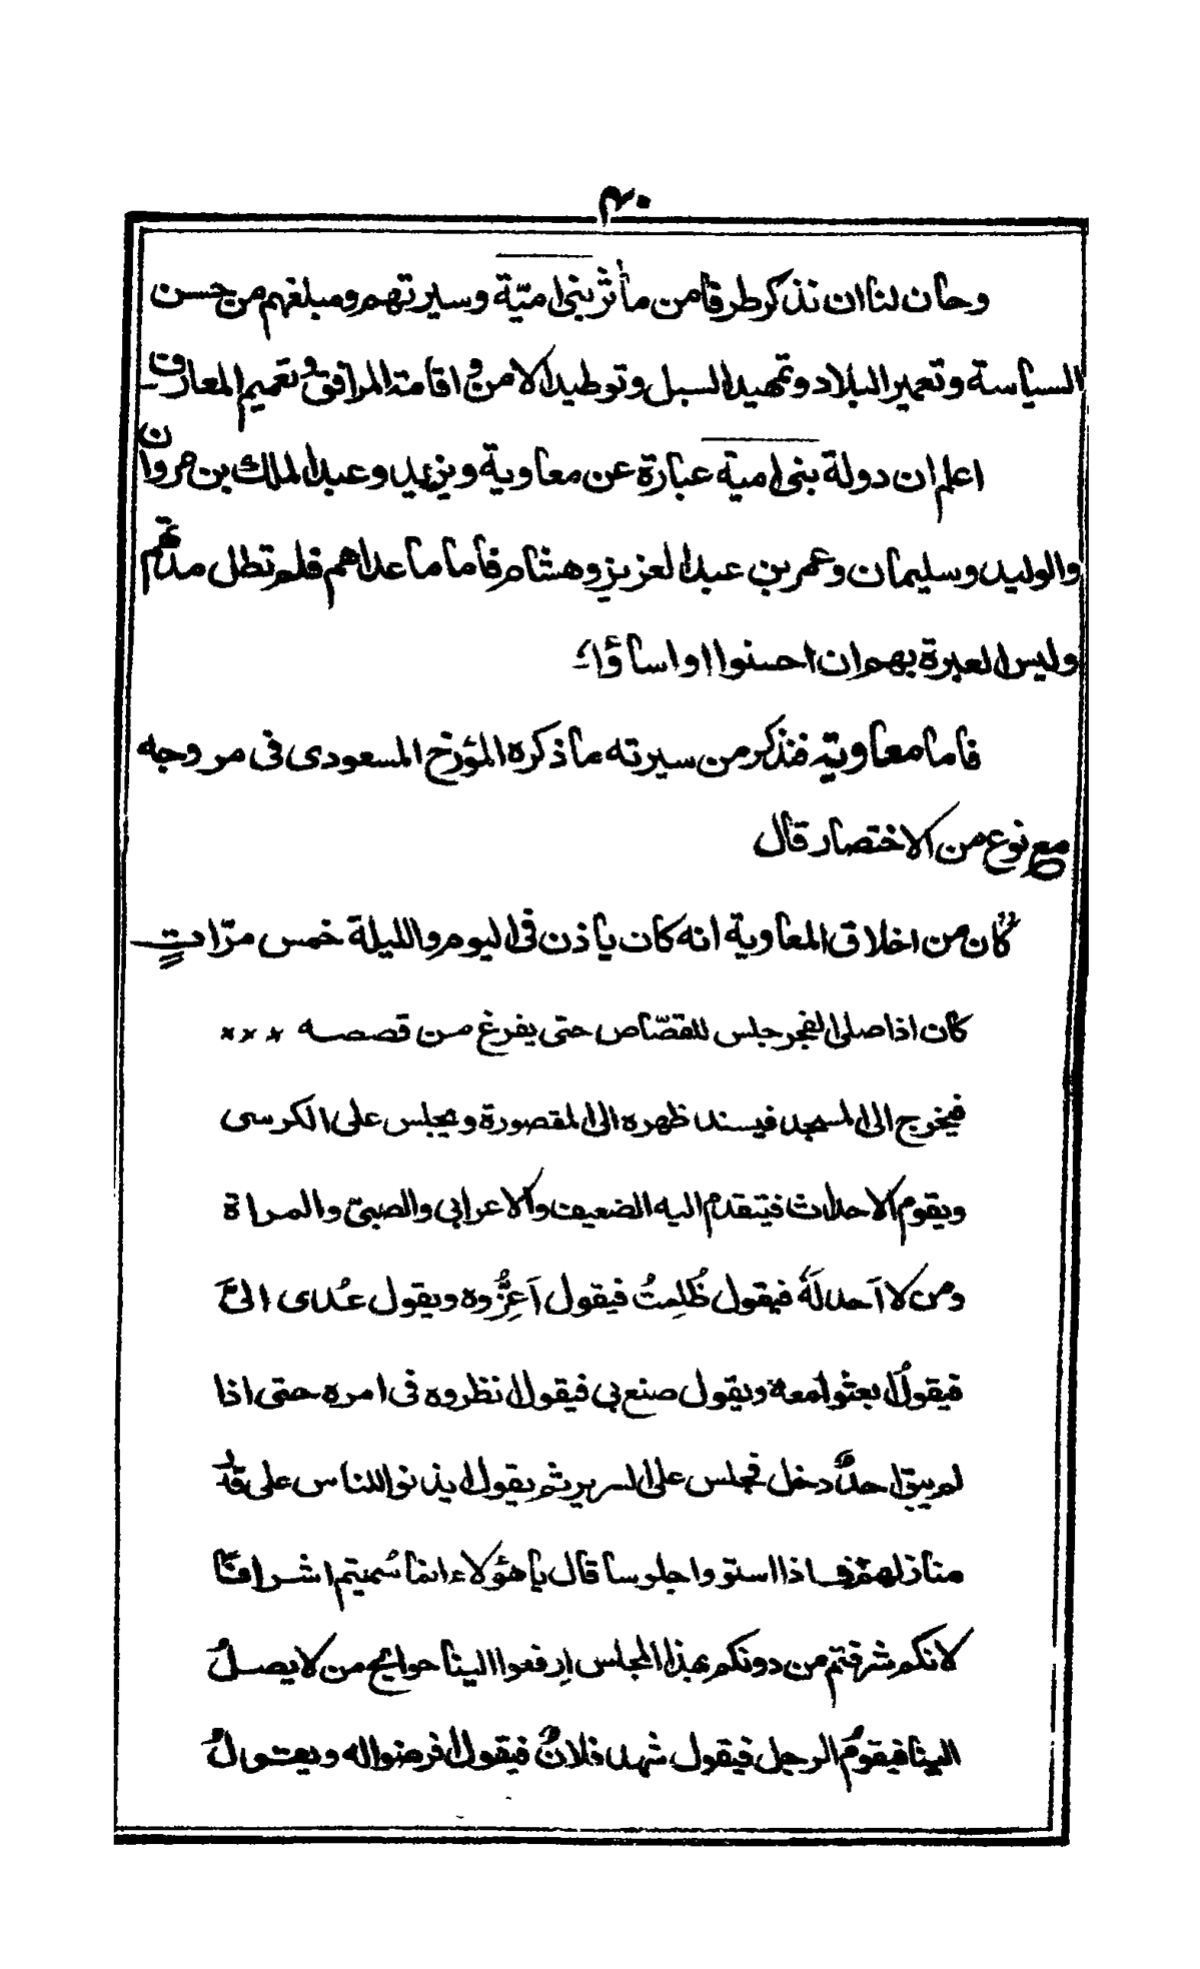 ۴۰
وحان لنا ان نذكر طرفا من مأثر بنى امیّة وسیرتهم ومبلغهم من حسن
السیاسة وتعمیر البلاد وتمهید السبل وتوطید الامن واقامة المرافق وتعمیم المعارف
اعلم ان دولة بنى امیة عبارة عن معاویة ویزید وعبد الملك بن مروان
والولید وسلیمان وعمر بن عبد العزیز وهشام فاما ما عداهم فلم تطل مدتهم
ولیس العبرة بهم ان احسنوا او اساؤا
فاما معاویة فنذكر من سیرته ما ذكره المؤرخ المسعودى فى مروجه
مع نوع من الاختصار قال
"كان من اخلاق المعاویة انه كان یاذن فى الیوم واللیلة خمس مرّاتٍ
كان اذا صلى الفجر جلس للقصّاص حتى یفرغ من قصصه × × ×
فیخرج الى المسجد فیسند ظهره الى المقصورة ویجلس على الكرسى
ویقوم الاحداث فیتقدم الیه الضعیف والاعرابي والصبیّ والمراة
ومن لا اَحد لَهُ فیقول ظُلِمتُ فیقول اَعِزُّوه ویقول عُدى الىَّ
فیقولُ ابعثوا معه ویقول صنع بي فیقول انظروه فى امره حتى اذا
لم یبق احدٌ دخل فجلس على السریر ثم یقول ایذنوا للناس على قدر
منازلهم فاذا استووا جلوسا قال یا هؤلاء انما سُمیتم اشرافًا
لانكم شرفتم من دونكم بهذا المجلس اِرفعوا الینا حوائج من لا یصلُ
الینا فیقومُ الرجل فیقول شهد فلانٌ فیقول افرضوا له ویقولُ